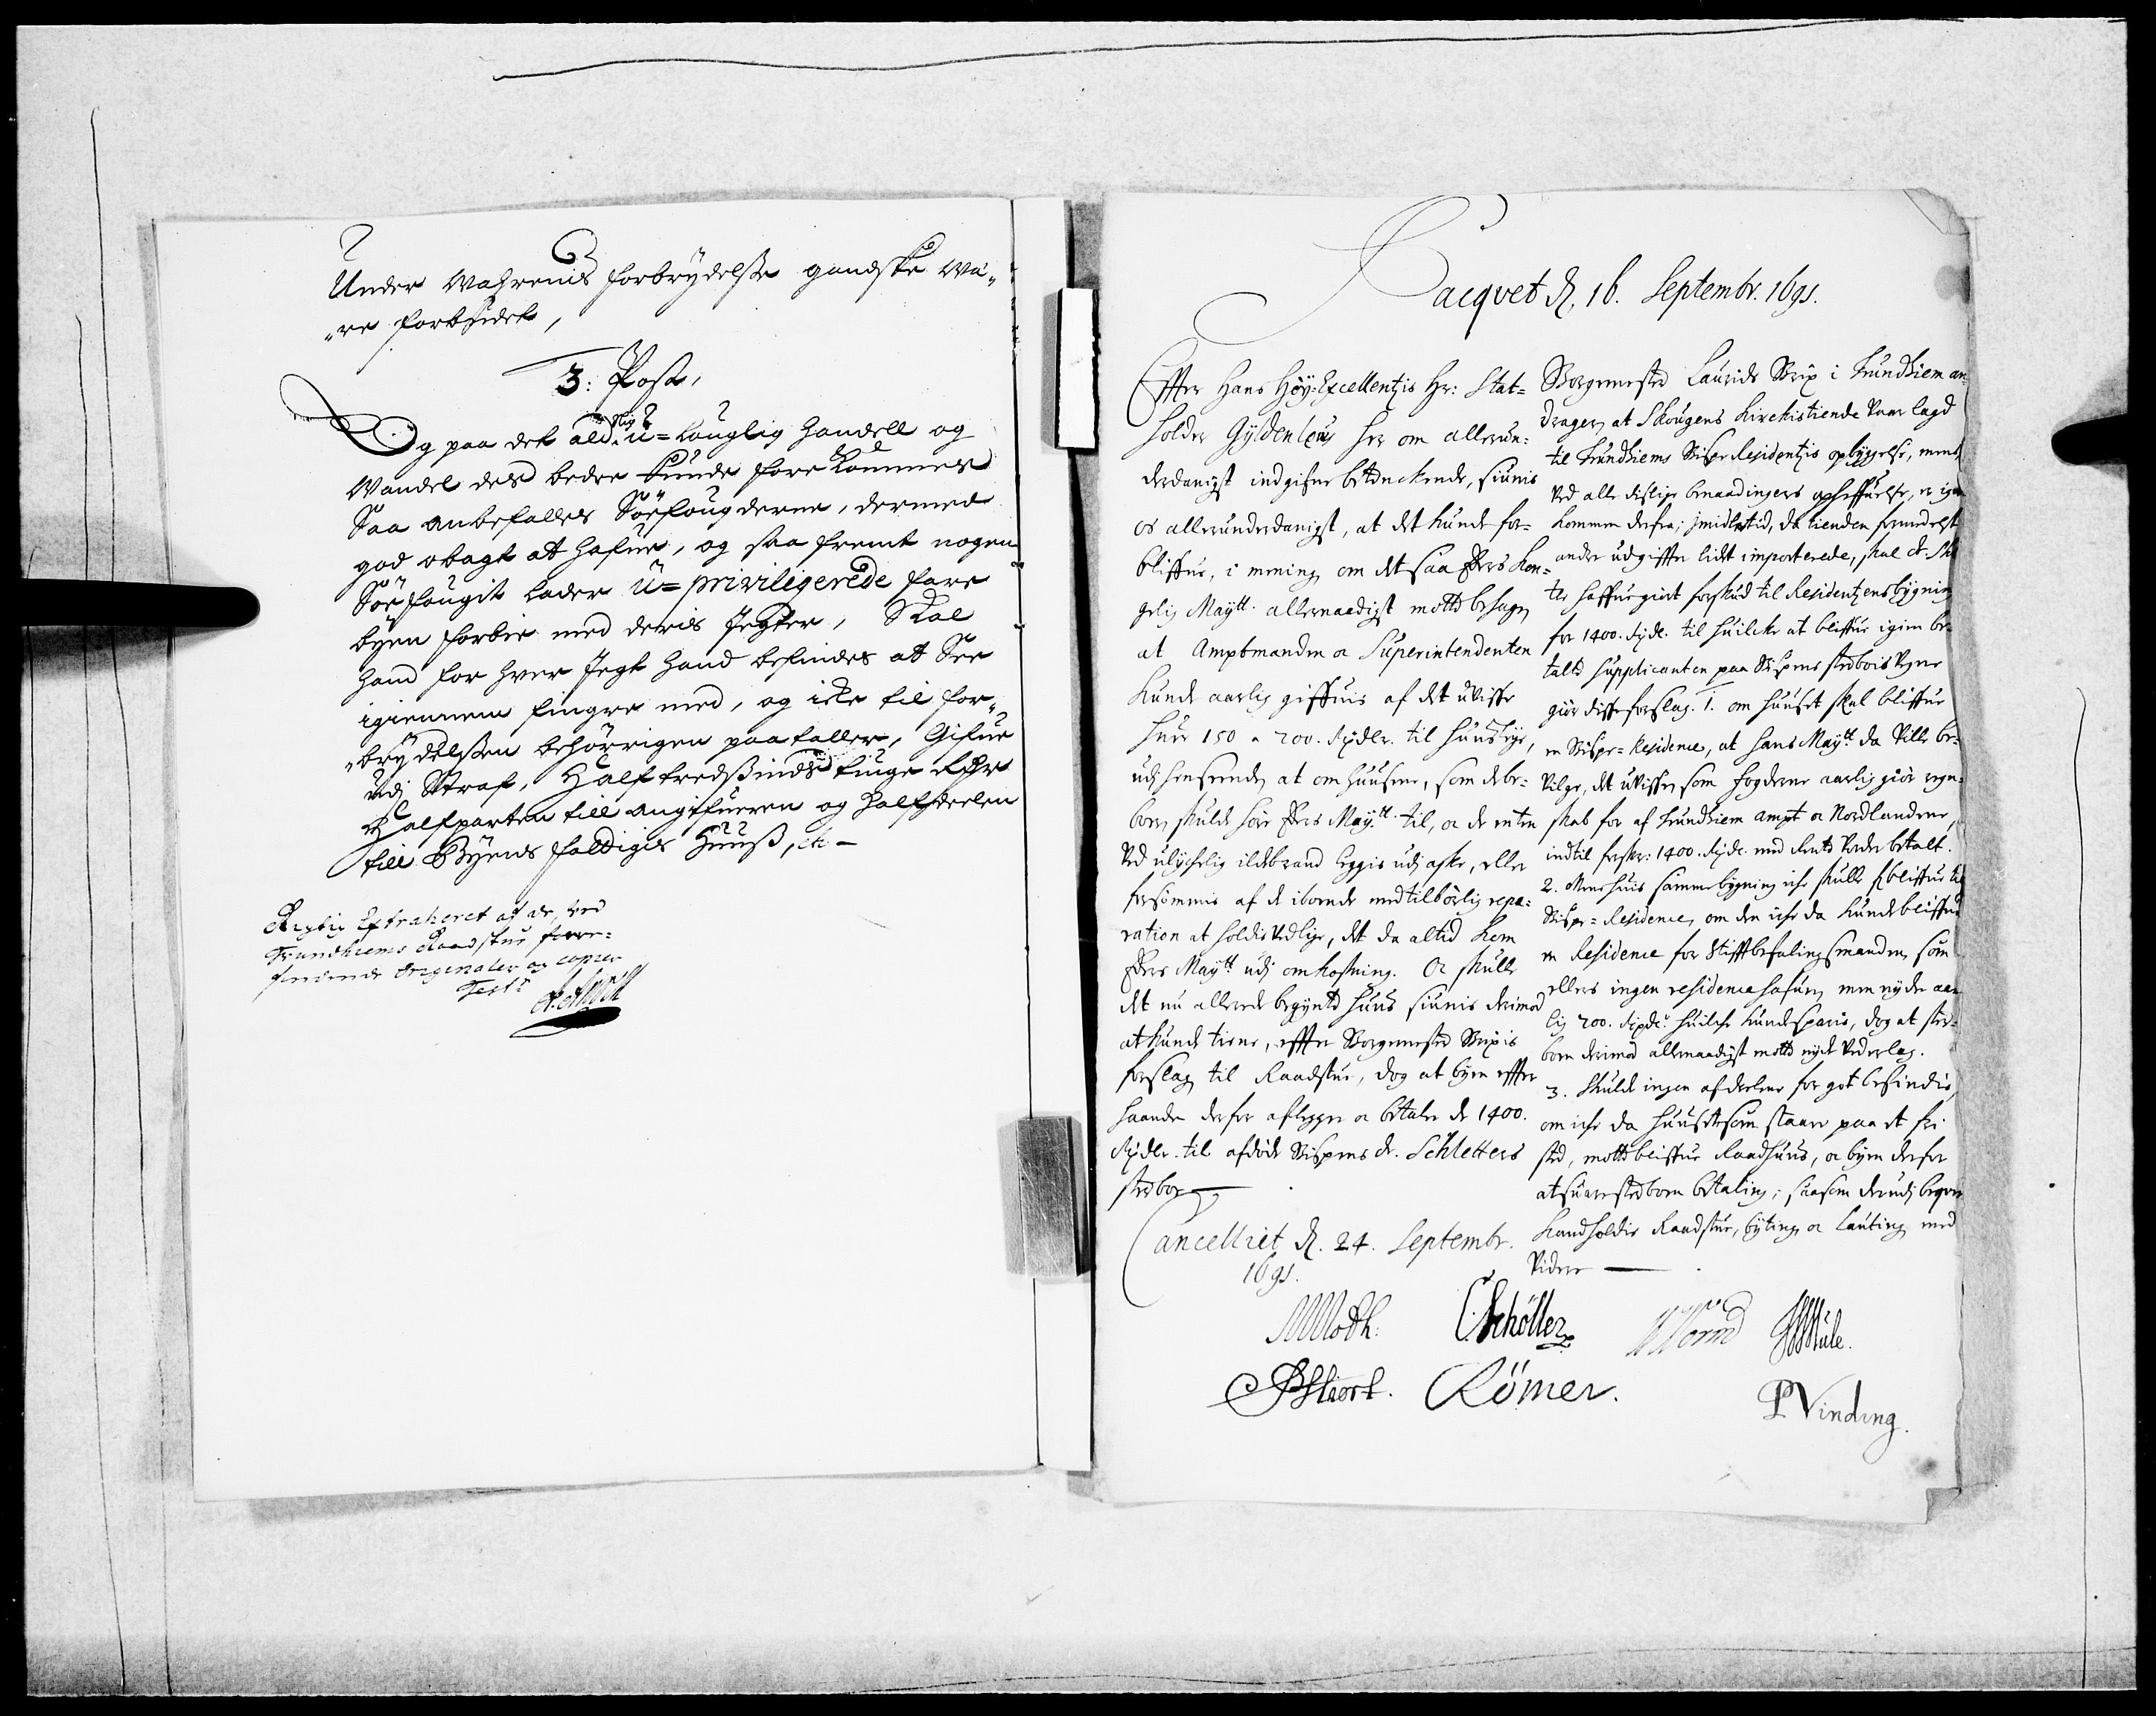 Under Wahrenis forbrydelsse gandske wæ„
„re forbudet,
3: Post,
Og paa det ald slig u=lauglig handell og
Vandel des bedre kunde forekommes
Saa anbefalles Søefougderne, dermed
god obagt at hafue, og saa fremt nogen
Søefougit lader u=priviligerede fare
byen forbie med deris Jegter, Skal
hand for hver Jegt hand befindes at See
igiennem fingre med, og icke til for„
„brydelssen behørrigen paataller, Gifue
udj Straf, Halftredssindstiuge Rdr
Halfparten till angifueren og halfdeelen
till Byens fattigis Huuss, etc –
Rigtig Extraheret af de, ved
Trundhiems Raadstue fore=
findende Originaler og Copier
Test:
Pacqvet d. 16. Septembr. 1691.
Effter Hans Høy-Excellentzis Hr: Stat=
holder Gyldenleus her om allerun=
derdanigst indgifne betenckende, siunis
os allerunderdanigst, at det kunde for=
bliffue, i mening om det saa Eders Kon=
gelig Maytt. allernaadigst motte behage
at Amptmanden oc Superintendenten
kunde aarlig giffuis af det uvisse
huer 150 a 200. Rixdlr. til huusleye,
udj henseende, at om huusene, som de be=
boer, skulde høre Eders Maytt. til, oc de enten
ved ulyckelig ildebrand leggis udj aske, eller
forsømmis af de iboende med tilbørlig repa=
ration at holdis vedlige, det da altid kom
Eders Maytt udj omkostning. Oc skulle
det nu allerede begynte huus siunis derimod
at kunde tiene, effter Borgemester Brixis
forslag til Raadstue, dog at byen effter
haanden derfor aflegger oc betaler de 1400.
Rixdlr. til afdøde Bispens dr. Schletters
sterboe
Cancelliet d. 24. Septembr.
1691.
Borgemester Laurids Brix i Trundhiem an=
drager, at Skougens Kirckistiende var lagd
til Trundhiems Bispe Residentzis opbyggelse, mens
ved alle dislige benaadingers ophæffuelse, er igien
kommen derfra; jmidlertid, da tienden formedelst
andre udgiffter lidt importerede, skal dr. Schle
ter haffue giort forskud til Residentzens bygning
for 1400. Rixdlr. til huilcke at bliffue igien be=
talte Supplicanten paa Bispens sterbois vegne
giør disse forslag. 1. om huuset skal bliffue
en Bispe=Residence, at Hans Maytt da ville be=
vilge, det uvisse, som fogderne aarlig giør regn=
skab for af Trundhiem ampt oc Nordlandene,
indtil forskr: 1400. Rixdr. med Rente vorder betalt.
2. Mens huis samme bygning icke skulle forbliffue til
Bispe=Residence, om den icke da kunde bliffue
en Residence for Stifftbefalingsmanden, som
ellers ingen residence hafuer, men nyder aar
lig 200. Rixdr. huilcke kunde sparis, dog at ster=
boen derimod allernaadigst motte nyde vederlag.
3. Skulde ingen af deelene for got befindis,
om icke da huuset som staar paa et fri
sted, motte bliffue Raadhuus, oc byen derfor
at suare sterboen betaling; saasom derudj beqvem
kand holdis Raadstue, byting, oc lauting med
videre
MMoth. CSchøller WWorm HMule.
PVinding.
Römer.